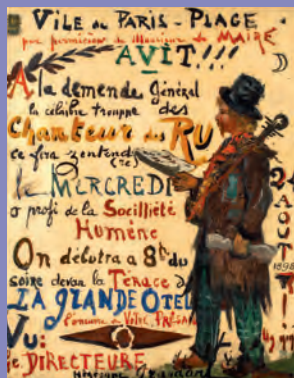 VILE de PARIS - PLAGE
par permicion de Mosieur le MAIRE
AVIT!!!
A la demende Général
la célèbre trouppe des
Chanteur des RU
ce fera zentendre
le MERCREDI 24 AOUT 1898
o profi de la Socilliété
Humène
On débutra a 8h du
soire devan la Térace d
LA GLANDE OTEL
Vu:
le DIRECTEURE